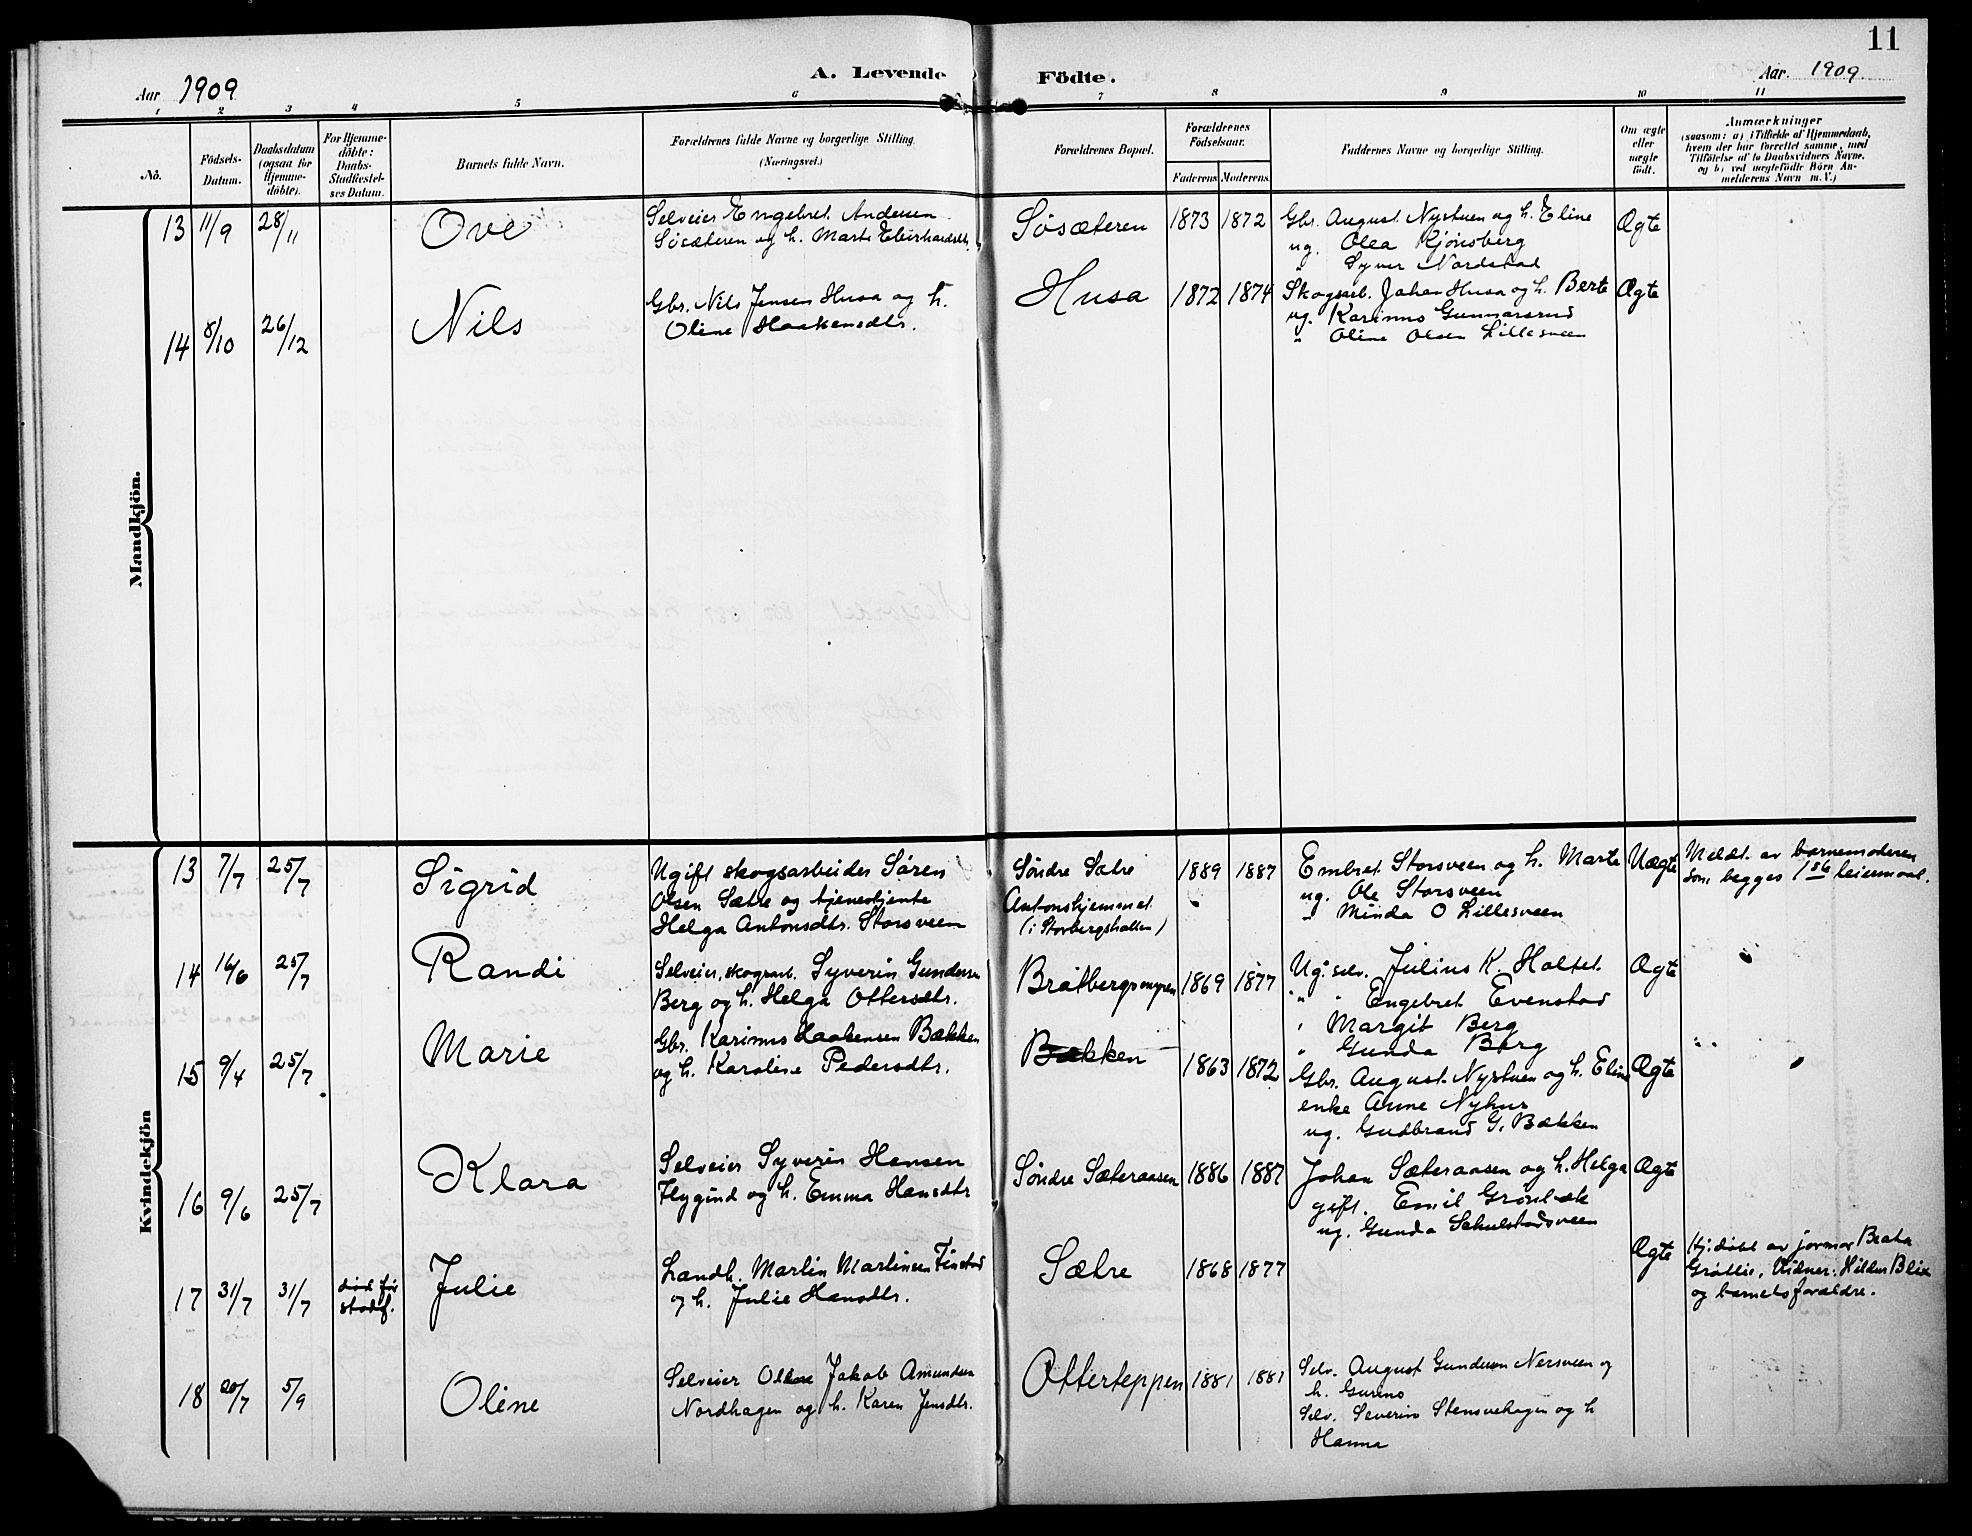 11
Aar 1909
A. Levende Födte.
Aar. 1909.
1 2 3 4 5 6 7 8 9 10 11
No.
Födsels-
Datum.
Daabsdatum
(ogsaa for
Hjemme-
döbte).
For Hjemme-
döbte:
Daabs-
Stadfæstel-
ses Datum.
Barnets fulde Navn.
Forældrenes fulde Navne og borgerlige Stilling.
(Næringsvei.)
Forældrenes Bopæl.
Forældrenes
Födselsaar.
Faderens Moderens
Faddernes Navne og borgerlige Stilling.
Om ægte
eller
uægte
födt.
Anmærkninger
(saasom: a) i Tilfælde af Hjemmedaab,
hvem der har forrettet samme, med
Tilföielse af to Daabsvidners Navne,
og b) ved uægtefödte Börn An-
melderens Navn m. V.)
Mandkjön.
13 11/9 28/11 Ove
Selveier Engebret Andersen
Søsæteren og h. Marte Eberhardsdtr.
Søsæteren 1873 1872
Gbr. August Nystuen og h. Eline
ug. Olea Kjønsberg
" Syver Nordstad
Ægte
14 8/10 26/12 Nils
Gbr. Nils Jensen Husa og h.
Oline Haakensdtr.
Husa 1872 1874
Skogsarb. Johan Husa og h. Berte
ug. Karinus Gunnarsrud
" Oline Olsen Lillesveen
Ægte
Kvindekjön
13 7/7 25/7 Sigrid
Ugift skogsarbeider Søren
Olsen Sætre og tjenestjente
Helga Antonsdtr. Storsveen
Søndre Sætre
Antonshjemmet
(i Storbergshallen)
1889 1887
Embret Storsveen og h. Marte
ug. Ole Storsveen
" Minda O Lillesveen
Uægte
Meldt av barnemoderen
som begges 1ste leiermaal.
14 16/6 25/7 Randi
Selveier, skogsarb. Syverin Gundersen
Berg og h. Helga Ottersdtr.
Bratbergsmyren 1869 1877
Ug. selv. Julius K. Holtet
" " Engebret Evenstad
" Margit Berg
" Gunda Berg
Ægte
15 9/4 25/7 Marie
Gbr. Karinus Haakensen Bækken
og h. Karoline Pedersdtr.
Bækken 1863 1872
Gbr. August Nystuen og h. Eline
enke Anne Nyhus
ug. Gudbrand G. Bækken
Ægte
16 9/6 25/7 Klara
Selveier Syverin Hansen
Flygind og h. Emma Hansdtr
Søndre Sæteraasen 1886 1887
Johan Sæteraasen og h. Helga
gift. Emil Grønbæk
ug. Gunda Schulstadsveen
Ægte
17 31/7 31/7 død før
stadf.
Julie
Landh. Martin Martinsen Finstad
og h. Julie Hansdtr.
Sætre 1868 1877
Ægte
Hj.døbt av jormor Beata
Grøtlie, Vidner: Hilda Blix
og barnets forældre.
18 20/7 5/9 Oline
Selveier Jakob Amundsen
Nordhagen og h. Karen Jensdtr.
Otterteppen 1881 1881
Selv. August Gundersen Nersveen og
h. Gurine
Selv. Severin Stensvehagen og h
Hanna